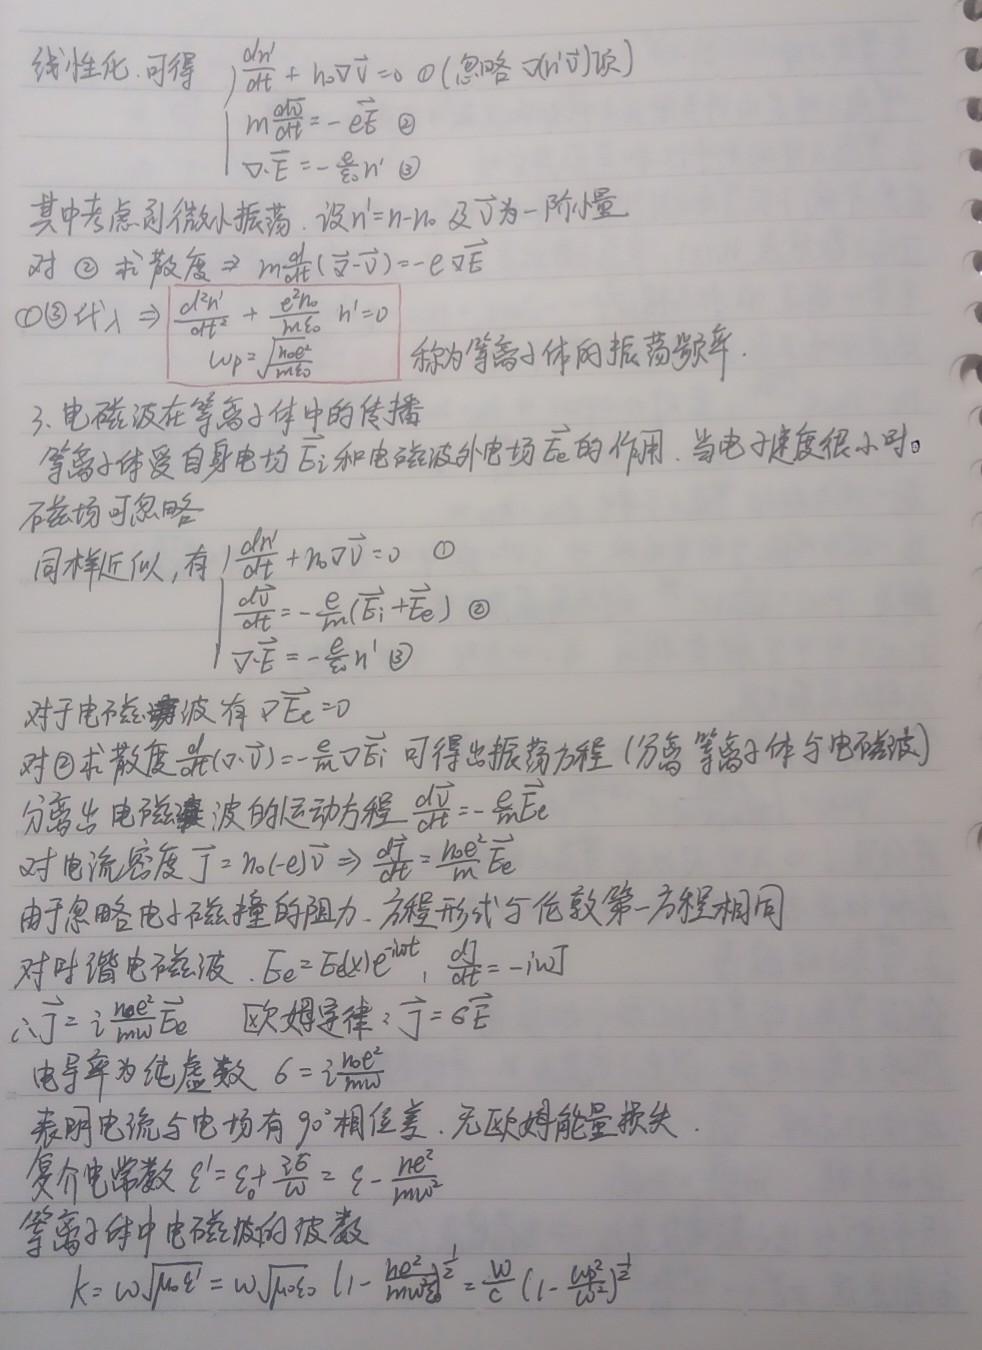 线性化.可得 dn'/dt + n₀∇v⃗=0 ① (忽略 ∇(n'v⃗)项)
m dv⃗/dt = -eE⃗ ②
∇·E⃗ = -e/ε₀ n' ③
其中考虑到微小振荡.设n'=n-n₀ 及v⃗为一阶小量
对 ② 求散度 ⇒ m d/dt(∇⃗·v⃗) = -e∇E⃗
①③代入 ⇒ d²n'/dt² + e²n₀/mε₀ n'=0
ωp=√(n₀e²/mε₀) 称为等离子体的振荡频率.
3、电磁波在等离子体中的传播
等离子体受自身电场E⃗i和电磁波外电场E⃗e的作用.当电子速度很小时。
磁场可忽略
同样近似,有 dn'/dt + n₀∇v⃗=0 ①
dv⃗/dt = -e/m(E⃗i+E⃗e) ②
∇·E⃗ = -e/ε₀ n' ③
对于电磁波有 ∇E⃗e=0
对②求散度 d/dt(∇·v⃗) = -e/m ∇E⃗i 可得出振荡方程 (分离等离子体与电磁波)
分离出电磁波的运动方程 dv⃗/dt = -e/m E⃗e
对电流密度 J⃗ = n₀(-e)v⃗ ⇒ dJ⃗/dt = n₀e²/m E⃗e
由于忽略电子磁撞的阻力.方程形式与伦敦第一方程相同
对时谐电磁波.Ee=Ee(x)e^-iωt, dJ/dt = -iωJ
∴J⃗ = i n₀e²/mω E⃗e 欧姆定律:J⃗=σE⃗
电导率为纯虚数 σ = i n₀e²/mω
表明电流与电场有90°相位差.无欧姆能量损失.
复介电常数 ε'=ε₀+ iσ/ω = ε - ne²/mω²
等离子体中电磁波的波数
k=ω√(μ₀ε') = ω√(μ₀ε₀) (1 - ne²/mω²ε₀)^1/2 = ω/c (1 - ωp²/ω²)^1/2